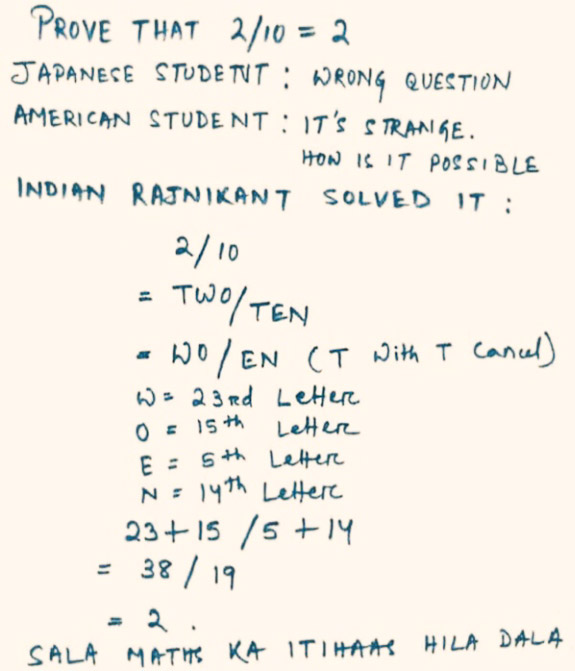 PROVE THAT 2/10 = 2
JAPANESE STUDETNT : WRONG QUESTION
AMERICAN STUDENT : IT'S STRANGE.
HOW IS IT POSSIBLE
INDIAN RAJNIKANT SOLVED IT :
2/10
= TWO/TEN
= WO/EN (T With T Cancel)
W = 23rd Letter
O = 15th Letter
E = 5th Letter
N = 14th Letter
23+15 /5 +14
= 38 / 19
= 2 .
SALA MATHS KA ITIHAAS HILA DALA